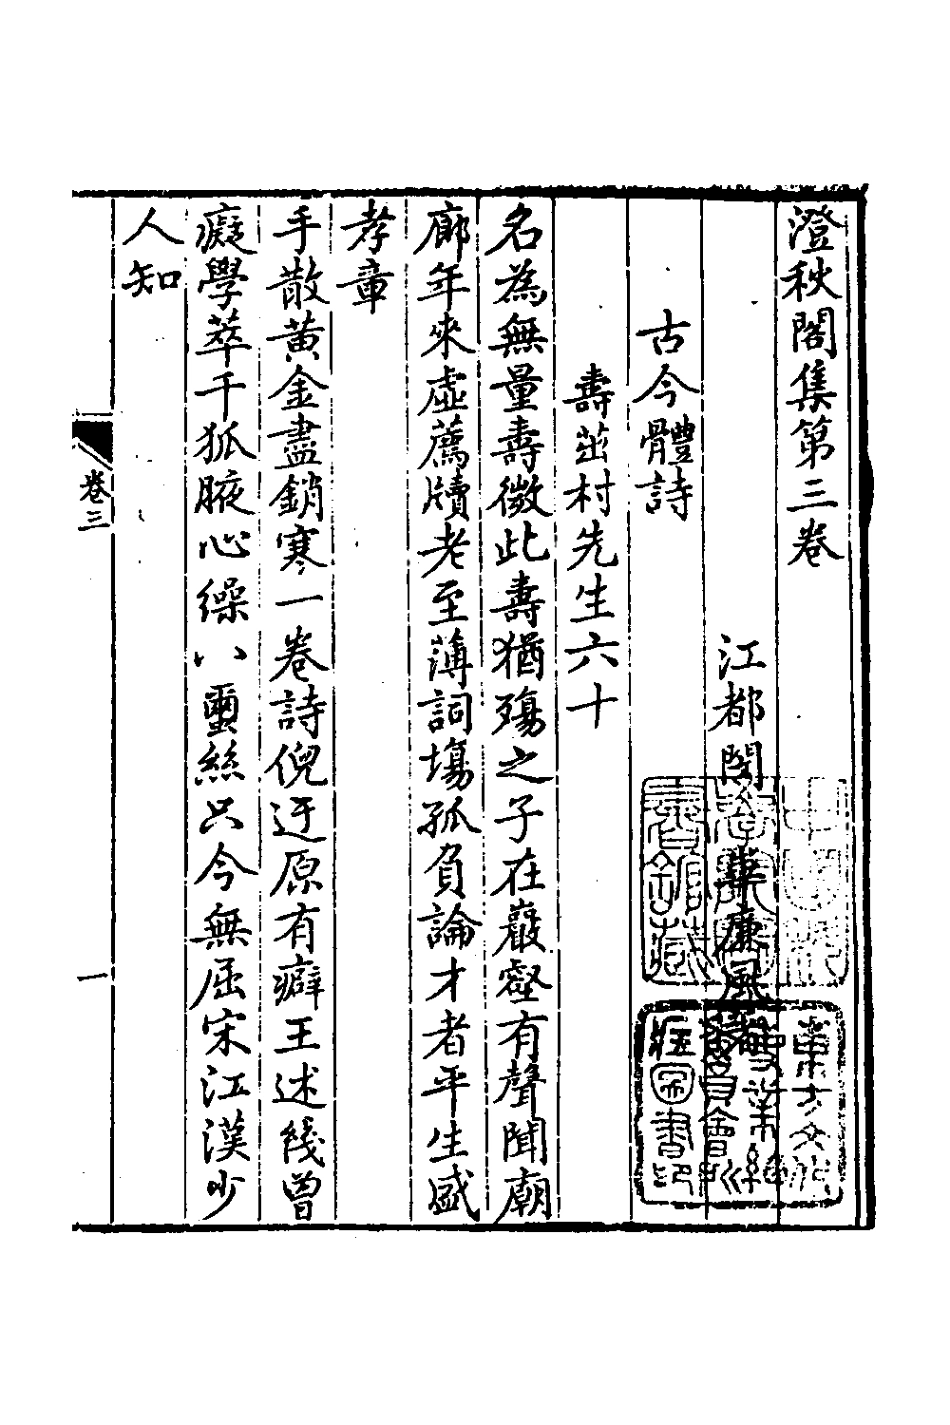 澄秋閣集第三卷
江都閔華廉風著
古今體詩
壽茁村先生六十
名為無量壽微此壽猶殤之子在巖壑有聲聞廟
廊年來虛薦牘老至薄詞塲孤負論才者平生感
孝章
手散黃金盡銷寒一卷詩倪迂原有癖王述幾曾
癡學萃千狐腋心繰八蠒絲只今無屈宋江漢少
人知
卷三
一
東方文化事業總委員會所藏圖書印